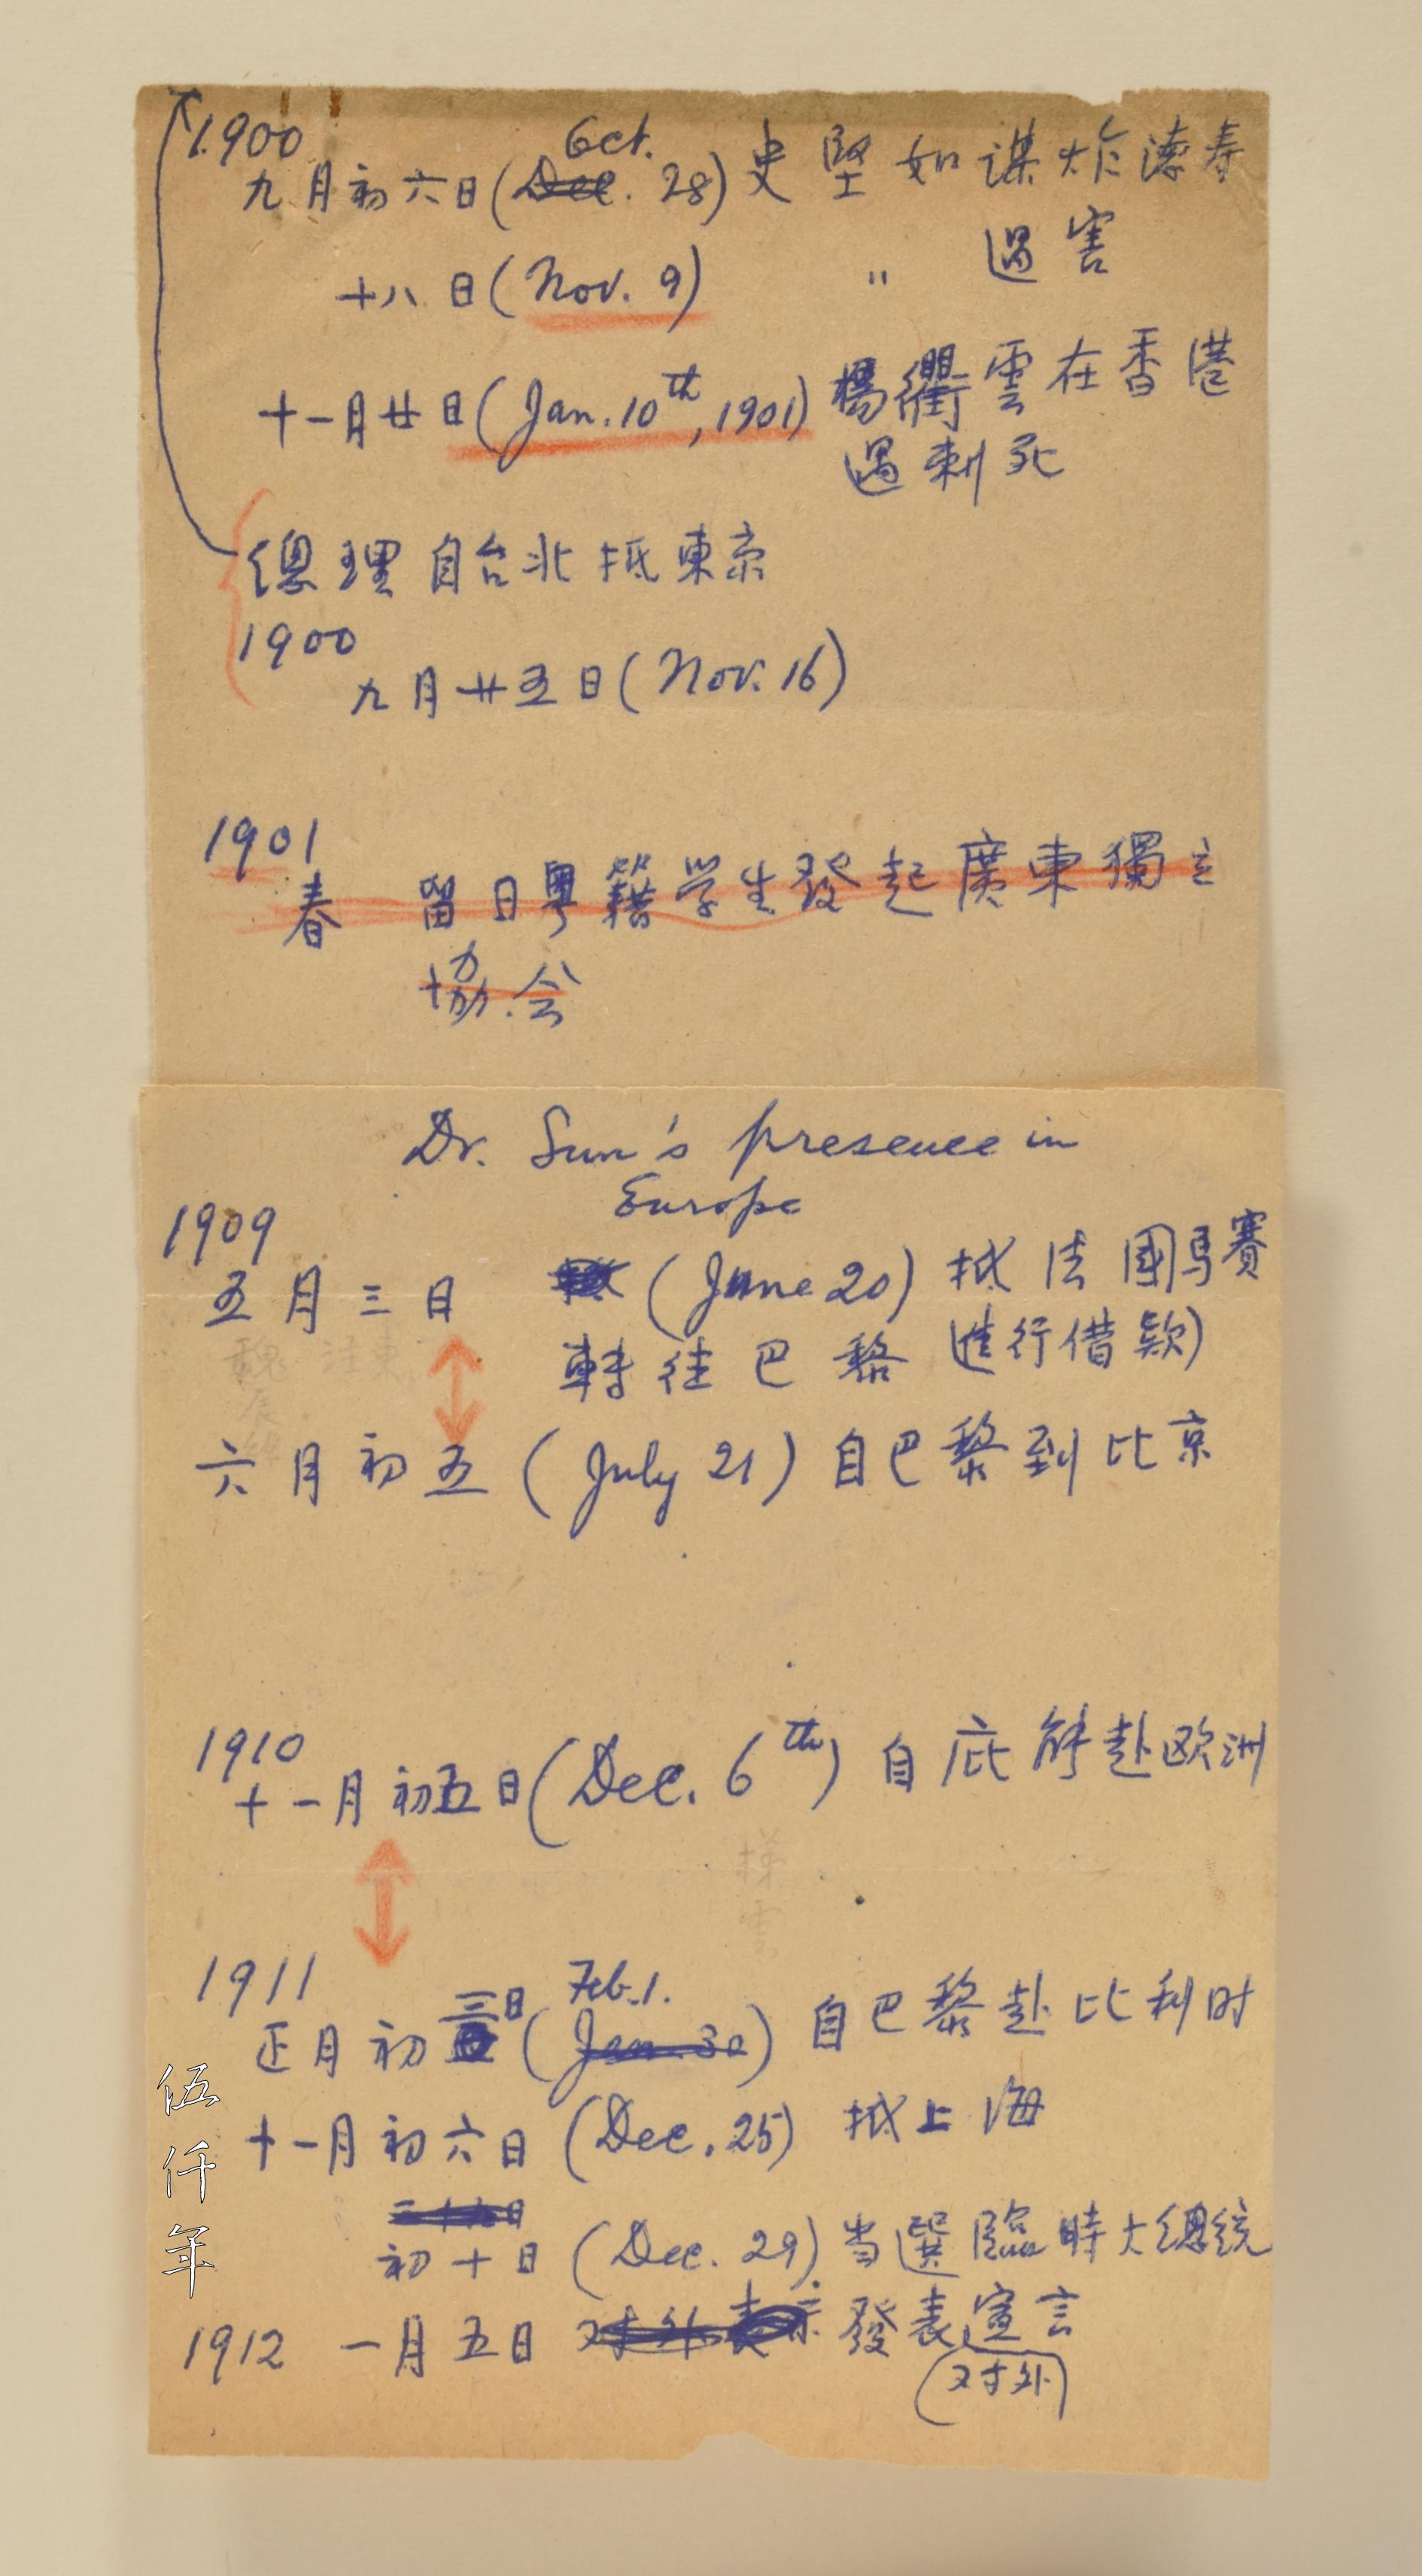 1900
九月初六日(Dec. 28)史堅如謀炸德寿
Oct.
十八日(Nov. 9) " 遇害
十一月廿日(Jan. 10th, 1901)楊衢雲在香港
遇刺死
總理自台北抵東京
1900
九月廿五日(Nov. 16)
1901
春 留日粵籍学生發起廣東獨立
協会
Dr. Sun's presence in
Europe
1909
五月三日 (June 20)抵法國馬賽
轉往巴黎 進行借款)
六月初五(July 21)自巴黎到比京
1910
十一月初五日(Dec. 6th)自庇能赴欧洲
1911
正月初三日(Jan. 30)自巴黎赴比利时
Feb. 1.
十一月初六日(Dec. 25)抵上海
初十日(Dec. 29)当選臨時大總統
1912 一月五日 对外表示發表宣言
(对外)
伍仟年